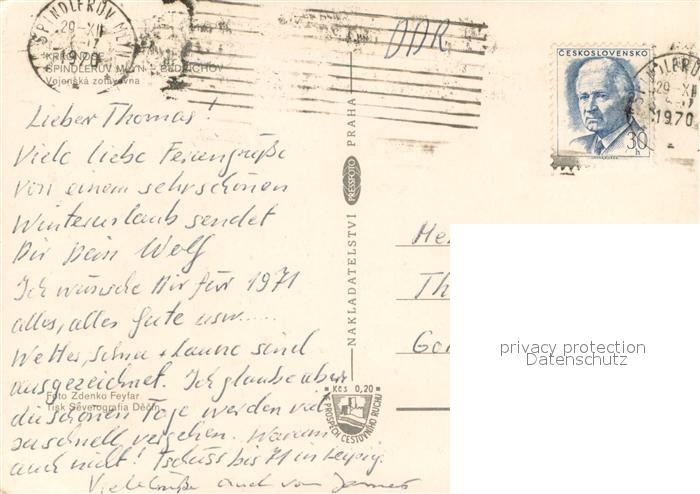 ŠPINDLERŮV MLÝN
29.-XII
1970
DDR
KRKONOŠE
ŠPINDLERŮV MLÝN - BEDŘICHOV
Vojenská zotavovna
ČESKOSLOVENSKO
30 h
29.-XII
1970
Lieber Thomas!
Viele liebe Feriengrüße
von einem sehr schönen
Winterurlaub sendet
Dir Dein Wolf
Ich wünsche Dir für 1971
alles, alles Gute usw.....
Wetter, Schnee + Laune sind
ausgezeichnet. Ich glaube aber
die schönen Tage werden viel
zu schnell vergehen. Warum
auch nicht! Tschüss bis 71 in Leipzig.
Viele Grüße auch von
Foto Zdenko Feyfar
Tisk Severografia Děčín
NAKLADATELSTVÍ PRESSFOTO PRAHA
Kčs 0,20
VE PROSPĚCH CESTOVNÍHO RUCHU
He
Th
Ge
privacy protection
Datenschutz